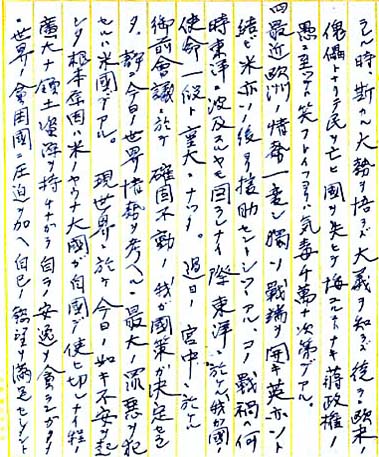 ラン時、斯カル大義ヲ悟ラズ大義ヲ知ラズ徒ラニ欧米ノ
傀儡トナリテ民ヲ亡ビ國ヲ失ヒテ悔ユルトナキ蔣政権ノ
愚ニ至ッテハ笑フトイフヨリハ気毒千萬ナ次第デアル。
四 最近欧洲ノ情勢一変シ獨ソ戦端ヲ開キ英ソント
結ビ米亦ソノ後ヲ援助セントシツツアル、コノ戦禍ハ何
時東洋ニ波及スルヤモ図ラレナイ際東洋ニ於ケル我ガ國ノ
使命ハ一段ト重大トナッタ。過日ノ宮中ニ於ケル
御前會議ニ於テ確固不動ノ我ガ國策ガ決定セラレ
タ。静カニ今日ノ世界情勢ヲ考ヘルニ最大ノ罪悪ヲ犯
セルハ米國デアル。現世界ニ於テ今日ノ如キ不安ヲ起
シタ根本原因ハ米ノヤウナ大國ガ自國デ使ヒ切レナイ程ノ
廣大ナ領土資源ヲ持チナガラ自ラノ安逸ヲ貪ランガタメ
世界ノ貧困國ニ圧迫ヲ加ヘ自己ノ欲望ヲ満足セシメント